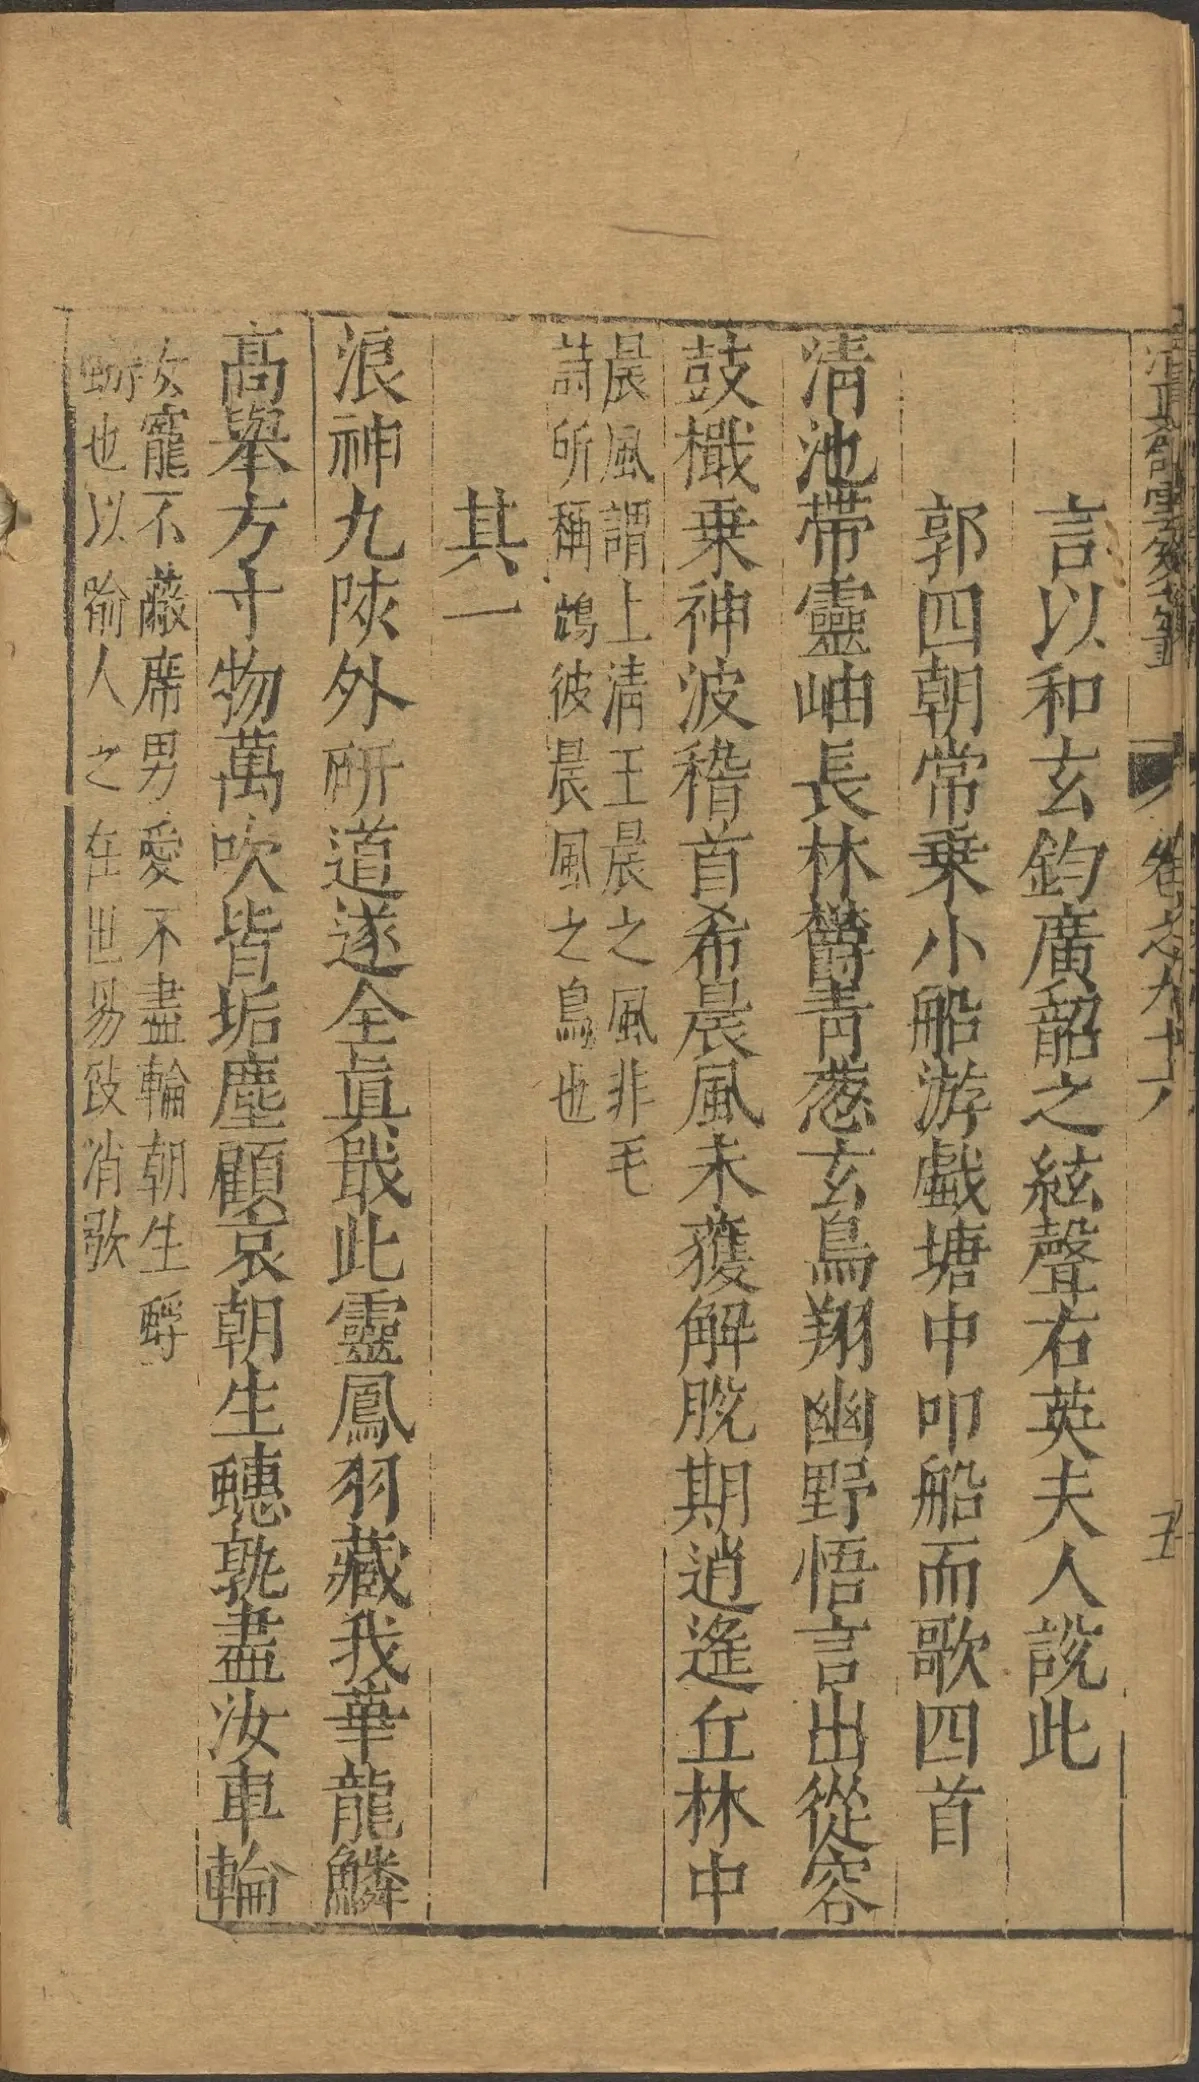 卷之九十六
五
言以和玄鈞廣韶之絃聲右英夫人說此
郭四朝常乗小船游戲塘中叩船而歌四首
清池帶靈岫長林欝青葱玄鳥翔幽野悟言出從容
鼓檝乗神波稽首希晨風未獲解脫期逍遙丘林中
晨風謂上清王晨之風非毛
詩所稱鴥彼晨風之鳥也
其一
浪神九陔外研道遂全眞戢此靈鳳羽藏我華龍鱗
高舉方寸物萬吹皆垢塵顧哀朝生蟪孰盡汝車輪
女寵不蔽席男愛不盡輪朝生蜉
蝣也以喻人之在世易致消歇